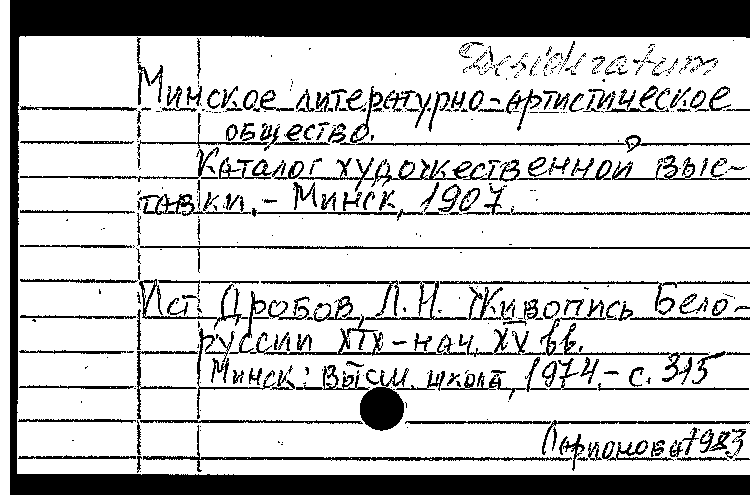 Desideratum
Минское литературно-артистическое
общество.
Каталог художественной выс-
тавки. - Минск, 1907.
Ист. Дробов, Л.Н. Живопись Бело-
руссии XIX - нач. XX вв.
Минск: Высш. школа, 1974. - с. 315
Ларионова 1983